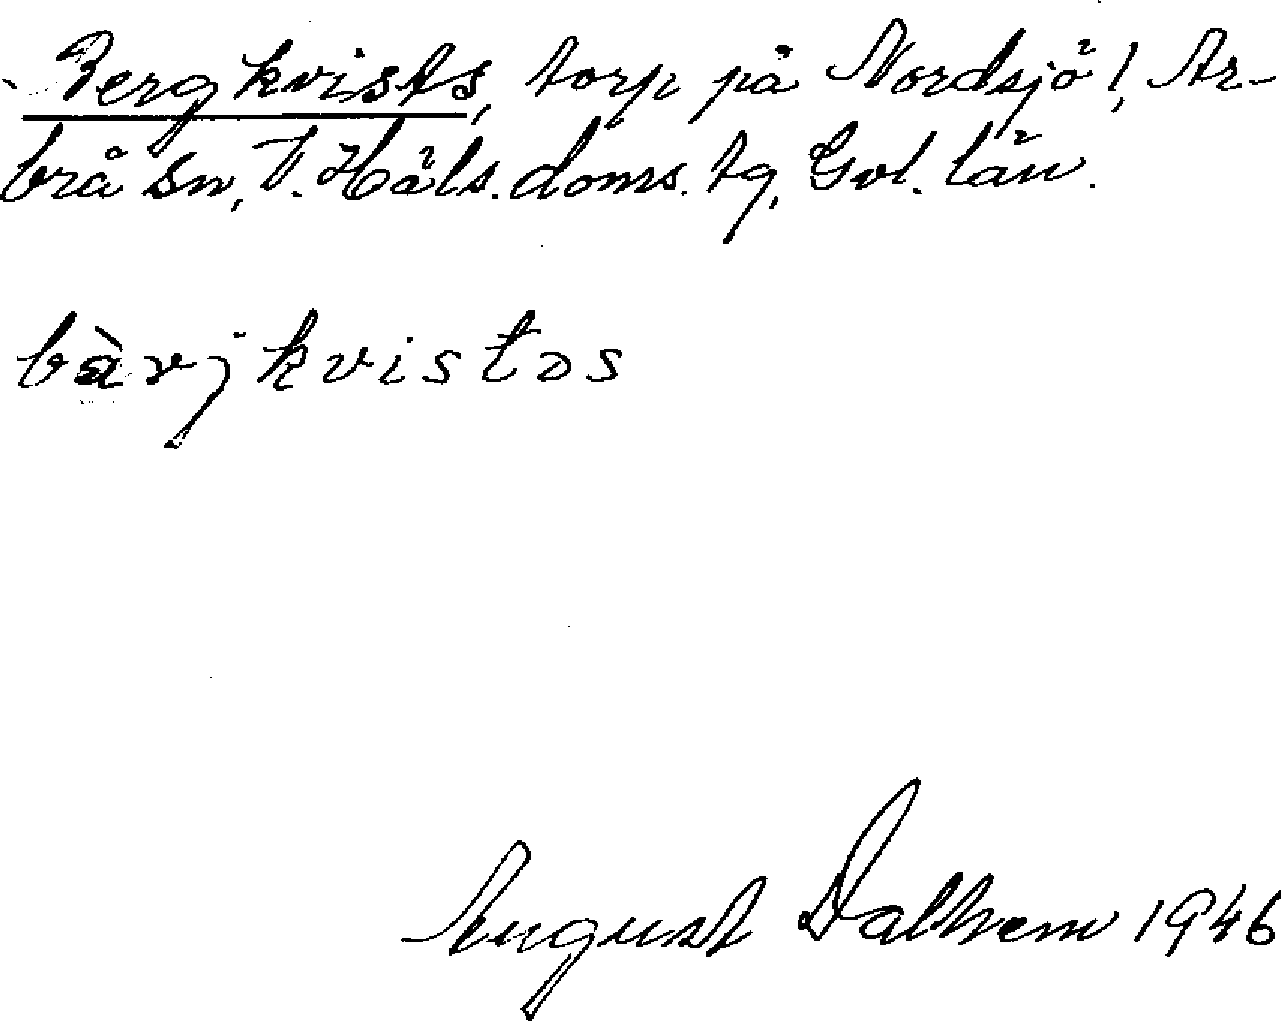 Bergkvists, torp på Nordsjö!, Ar-
brå sn, V. Häls. doms. tg, Gvl. län.
bàrjkvistəs
August Dalhem 1946